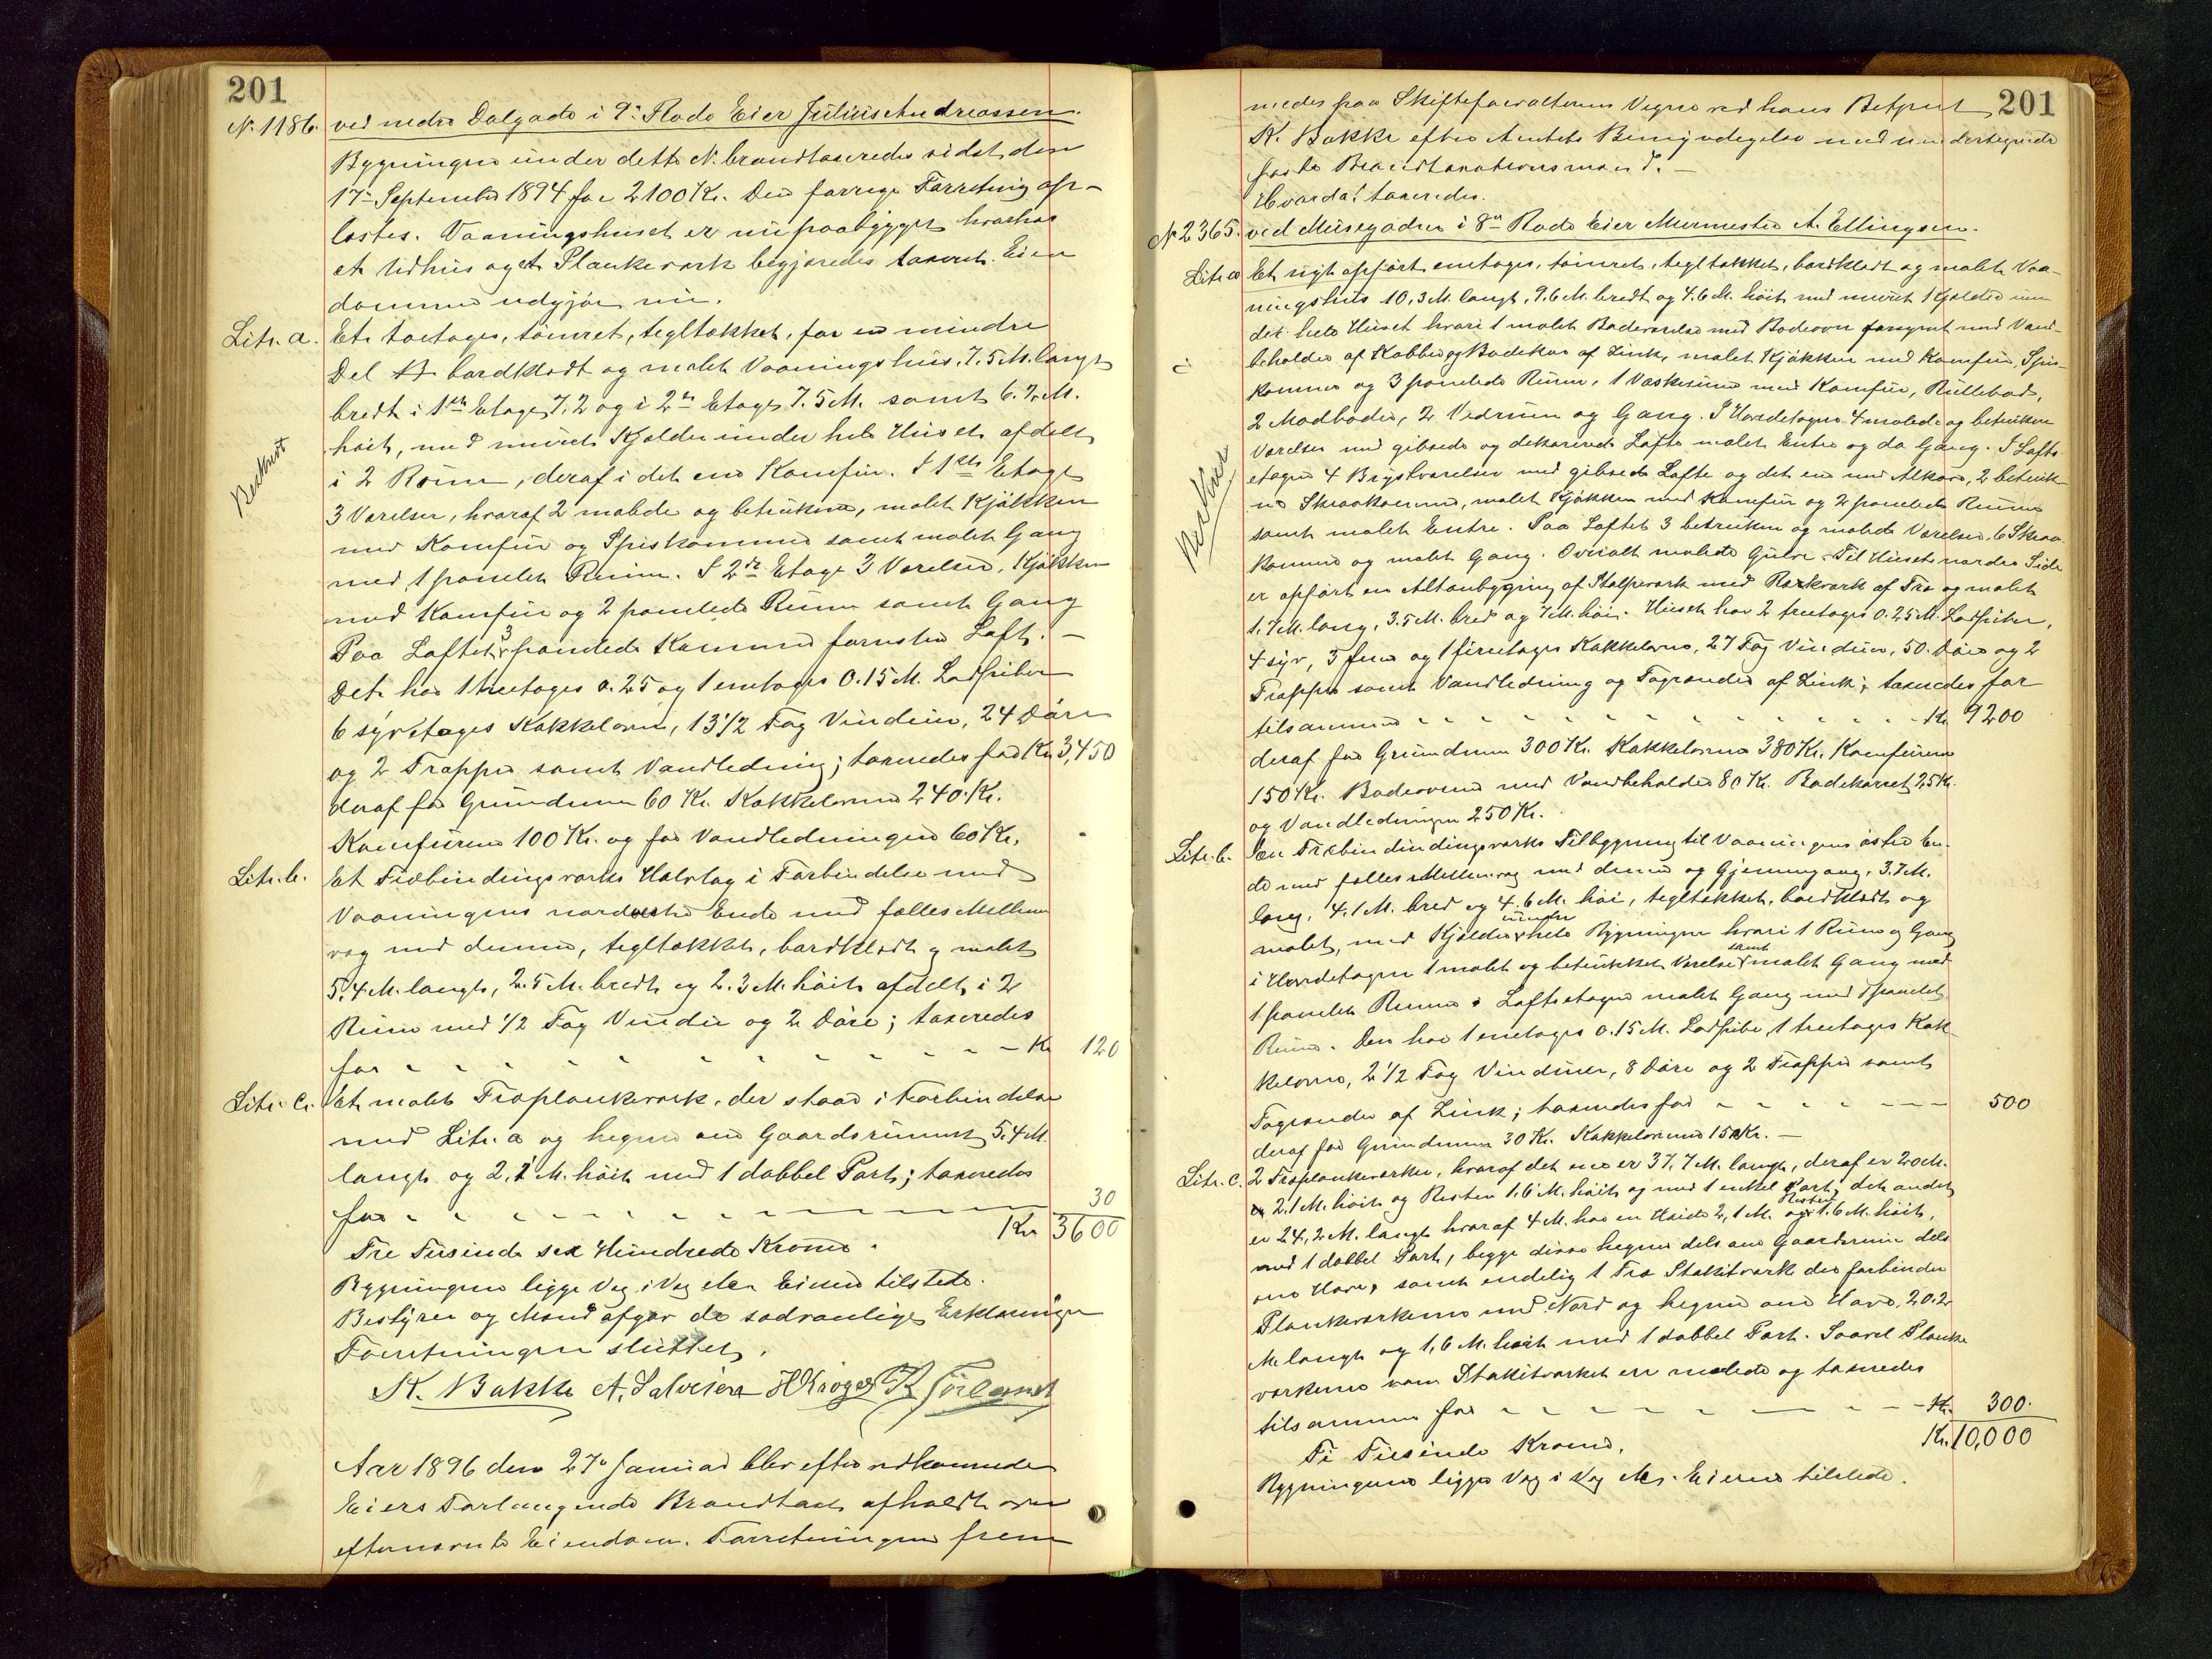 201
N. 1186. ved nedre Dalgade i 9de Rode Eier Julius Andreassen.
Bygningerne under dette N. brandtaxeredes sidst den
17de September 1894 for 2100 Kr. Den forrige Forretning op-
læstes. Vaaningshuset er nu paabygget hvorhos
et Udhus og et Plankeværk begjæredes taxeret. Eien
dommen udgjør nu.
Litr. a. Et toetages, tømret, tegltækket, for en mindre
Del bordklædt og malet Vaaningshus, 7.5 M. langt
bredt i 1ste Etage 7,2 og i 2den Etage 7.5 M. samt 6.7 M.
høit, med muret Kjelder under hele Huset afdelt
Beskrevet
i 2 Rum, deraf i det ene Komfur. I 1ste Etage
3 Værelser, hvoraf 2 malede og betrukne, malet Kjøkken
med Komfur og Spiskammer samt malet Gang
med 1 panelet Rum. I 2den Etage 3 Værelser, Kjøkken
med Komfur og 2 panelede Rum samt Gang
Paa Loftet 3 panelede Kammer forresten Loft. –
Det har 1 treetages 0.25 og 1 enetages 0.15 M. Lodpiber
6 syvetages Kakkelovne, 13 1/2 Fag Vinduer, 24 Døre
og 2 Trapper samt Vandledning; taxeredes for Kr. 3,450
deraf for Grundmuren 60 Kr. Kakkelovne 240 Kr.
Komfurerne 100 Kr. og for Vandledningen 60 Kr.
Litr. b. Et Træbindingsværks Halvtag i Forbindelse med
Vaaningens nordvestre Ende med fælles Mellem
væg med denne, tegltækket, bordklædt og malet
5,4 M. langt, 2.5 M. bredt og 2.3 M. høit afdelt i 2
Rum med 1/2 Fag Vindue og 2 Døre; taxeredes
for - - - - Kr 120
Litr. c. Et malet Træplankeværk, der staar i Forbindelse
med Litr. a og hegner om Gaardsrummet 5.4 M.
langt og 2,1 M. høit med 1 dobbel Port; taxeredes
for - - - - 30
Tre Tusinde sex Hundrede Kroner. Kr 3600
Bygningerne ligger Væg i Væg Eieren tilstede.
Bestyrer og Mænd afgav de sædvanlige Erklæringer
Forretningen sluttet.
K. Bakke A. Salvesen H Krøger K Førland
Aar 1896 den 27de Januar blev efter vedkommende
Eiers Forlangende Brandtaxt afholdt over
efternævnte Eiendom. Forretningen frem
201
medes paa Skifteforvalterens Vegne ved hans Betjent
K. Bakke efter Amtets Bemyndigelse med undertegnede
faste Brandtaxationsmænd. –
Hvorda! taxeredes.
N 2365. ved Musegaden i 8de Rode Eier Murmester A. Ellingsen.
Litr. a Et nyt opført enetages, tømret, tegltækket, bordklædt og malet Vaa-
ningshus 10,3 M. langt, 9.6 M. bredt og 4.6 M. høit med muret Kjelder un
der hele Huset hvori 1 malet Badeværelse med Badeovn forsynet med Vand-
beholder af Kobber og Badekar af Zink, malet Kjøkken med Komfur, Spis-
kammer og 3 panelede Rum, 1 Vaskerum med Komfur, Rullebod,
2 Madboder, 2 Vedrum og Gang. I Hovedetagen 4 malede og betrukne
Værelser med gibsede og dekorerede Lofte malet Entre og do Gang. I Lofts
etagen 4 Brystværelser med gibsede Lofte og det ene med Alkove, 2 betruk-
Beskrevet
ne Skraakammer, malet Kjøkken med Komfur og 2 panelede Rum
samt malet Entre. Paa Loftet 3 betrukne og malede Værelser, 6 Skraa-
kammer og malet Gang. Overalt malede Gulve. Til Husets nordre Side
er opført en Altanbygning af Stolpeværk med Rækværk af Træ og malet
1.7 M. lang, 3.5 M. bred og 7 M. høi. Huset har 2 treetages 0.25 M. Lodpiber,
4 syv, 5 fem og 1 firetages Kakkelovne, 27 Fag Vinduer, 50 Døre og 2
Trapper samt Vandledning og Tagrender af Zink; taxeredes for
tilsammen - - - - Kr. 9200
deraf for Grundmuren 300 Kr. Kakkelovne 380 Kr. Komfurerne
150 Kr. Badeovnen med Vandbeholder 80 Kr. Badekarret 25 Kr.
og Vandledningen 250 Kr.
Litr. b. En Træbindindingsværks Tilbygning til Vaaningens østre En-
de med fælles Mellemvæg med denne og Gjennemgang, 3.7 M.
lang, 4.1 M. bred og 4.6 M. høi, tegltækket, bordklædt og
malet, med Kjelder under hele Bygningen hvori 1 Rum og Gang
i Hovedetagen 1 malet og betrukket Værelse samt malet Gang med
1 panelet Rum. I Loftsetagen malet Gang med 1 panelet
Rum. Den har 1 enetages 0.15 M. Lodpibe, 1 treetages Kak-
kelovn, 2 1/2 Fag Vinduer, 8 Døre og 2 Trapper samt
Tagrender af Zink; taxeredes for - - - - 500
deraf for Grundmuren 30 Kr. Kakkelovnen 15 Kr. –
Litr. c. 2 Træplankeværker, hvoraf det ene er 37,7 M. langt, deraf er 20 M.
2.1 M. høit og Resten 1,6 M. høit og med 1 enkel Port, det andet
er 24,2 M. langt hvoraf 4 M. har en Høide 2,1 M. og Resten 1.6 M. høit,
med 1 dobbel Port, begge disse hegner dels om Gaardsrum dels
om Have, samt endelig 1 Træ Stakitværk der forbinder
Plankeværkerne mod Nord og hegner om Have, 20.2
M. langt og 1,6 M. høit med 1 dobbel Port. Saavel Planke
værkerne som Stakitværket er malede og taxeredes
tilsammen for - - - - Kr. 300.
Ti Tusinde Kroner. Kr. 10,000
Bygningerne ligger Væg i Væg Eieren tilstede.